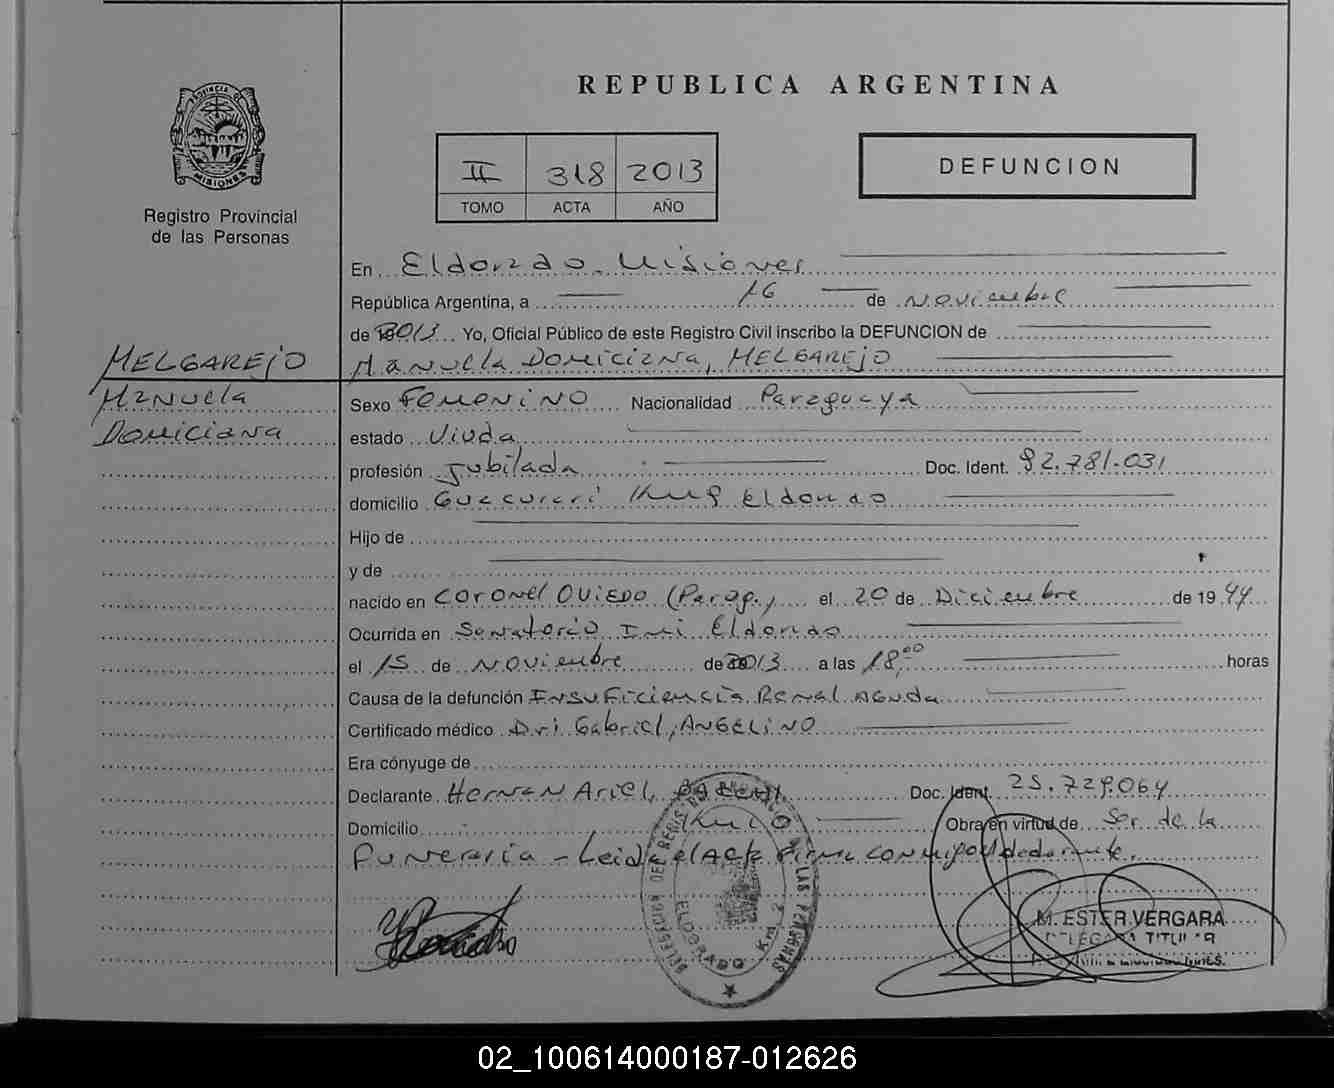 REPUBLICA ARGENTINA
PROVINCIA DE
MISIONES
Registro Provincial
de las Personas
II 318 2013
TOMO ACTA AÑO
DEFUNCION
En Eldorado Misiones
República Argentina, a 16 de Noviembre
de 2013 Yo, Oficial Público de este Registro Civil inscribo la DEFUNCION de
MELGAREJO Manuela Domiciana, MELGAREJO
Manuela Sexo Femenino Nacionalidad Paraguaya
Domiciana estado Viuda
profesión Jubilada Doc. Ident. 92.781.031
domicilio Guacurari Km 9 Eldorado
Hijo de
y de
nacido en Coronel Oviedo (Parag.) el 20 de Diciembre de 1944
Ocurrida en Sanatorio Eldorado
el 15 de Noviembre de 2013 a las 18,00 horas
Causa de la defunción Insuficiencia Renal Aguda
Certificado médico Dr: Gabriel, ANGELINO
Era cónyuge de
Declarante Hernan Ariel, Doc. Ident. 25.729.064
Domicilio Km 10 Obra en virtud de Ser de la
Funeraria - Leida el Acta Firma conmigo el declarante.
DELEGACION DEL REGISTRO DE LAS PERSONAS
ELDORADO Km. 2
M. ESTER VERGARA
DELEGADA TITULAR
02_100614000187-012626